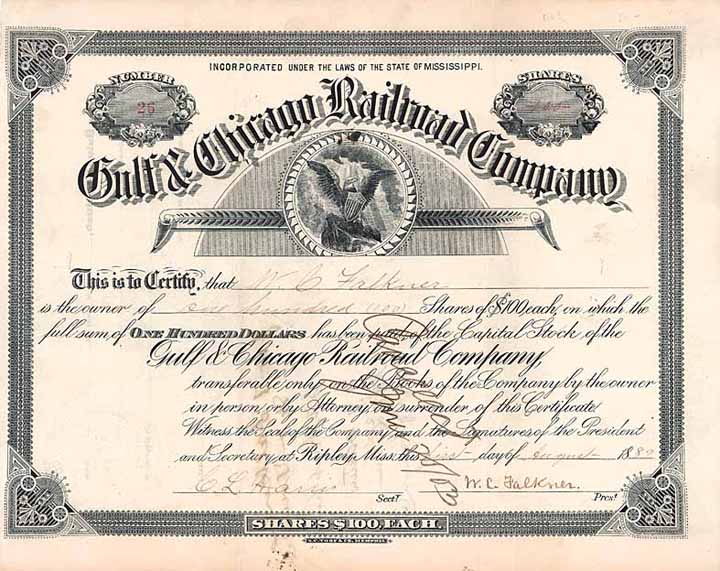 INCORPORATED UNDER THE LAWS OF THE STATE OF MISSISSIPPI.
NUMBER
26
SHARES
Gulf & Chicago Railroad Company
This is to Certify, that W. C. Falkner
is the owner of one hundred (100) Shares of $100 each, on which the
full sum of ONE HUNDRED DOLLARS has been paid, of the Capital Stock of the
Gulf & Chicago Railroad Company,
transferable only on the Books of the Company by the owner
in person or by Attorney on surrender of this Certificate.
Witness the Seal of the Company and the Signatures of the President
and Secretary, at Ripley, Miss. this first day of August 1889
C. L. Harris Sect'y W. C. Falkner. Prest
SHARES $100, EACH.